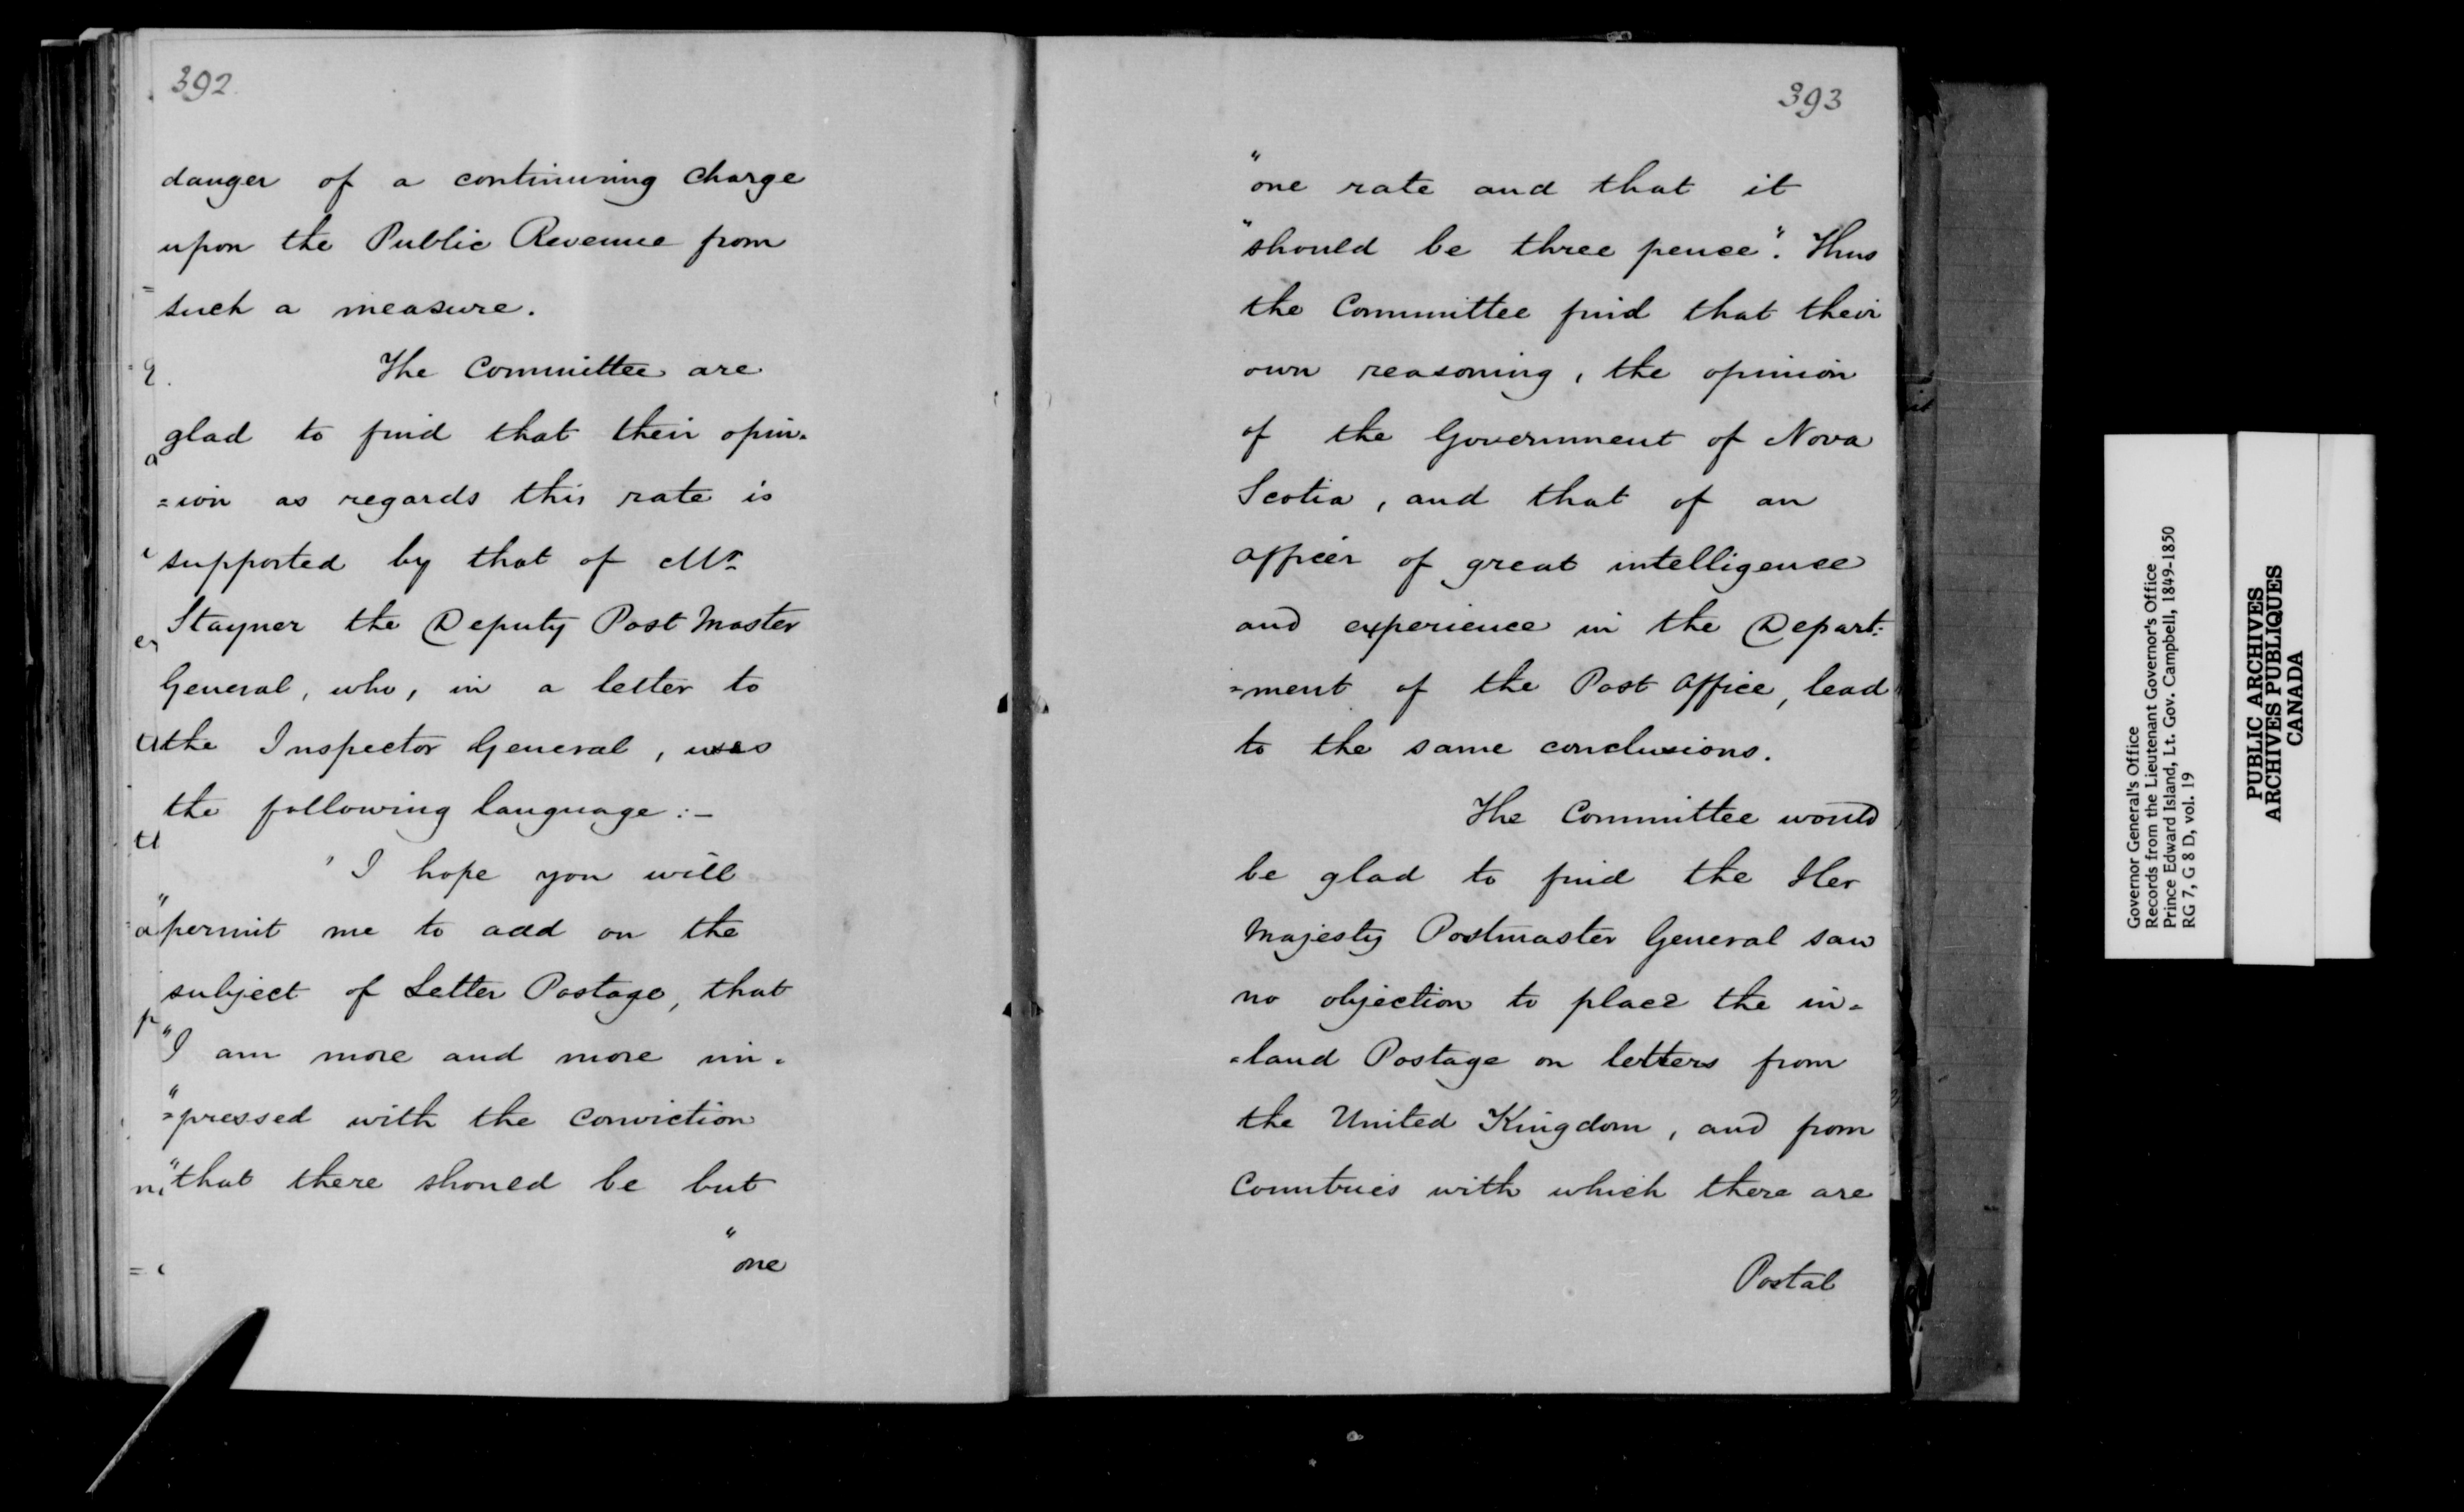 392.
danger of a continuing charge
upon the Public Revenue from
such a measure.
The Committee are
glad to find that their opin-
=ion as regards this rate is
supported by that of Mr.
Stayner the Deputy Post Master
General, who, in a letter to
the Inspector General, uses
the following language:-
"I hope you will
"permit me to add on the
subject of Letter Postage, that
"I am more and more im-
"=pressed with the conviction
"that there should be but
"one
393
"one rate and that it
"should be three pence". Thus
the Committee find that their
own reasoning, the opinion
of the Government of Nova
Scotia, and that of an
officer of great intelligence
and experience in the Depart-
=ment of the Post Office, lead
to the same conclusions.
The Committee would
be glad to find the Her
Majesty Postmaster General saw
no objection to place the in-
=land Postage on letters from
the United Kingdom, and from
Countries with which there are
Postal
Governor General's Office
Records from the Lieutenant Governor's Office
Prince Edward Island, Lt. Gov. Campbell, 1849-1850
RG 7, G 8 D, vol. 19
PUBLIC ARCHIVES
ARCHIVES PUBLIQUES
CANADA